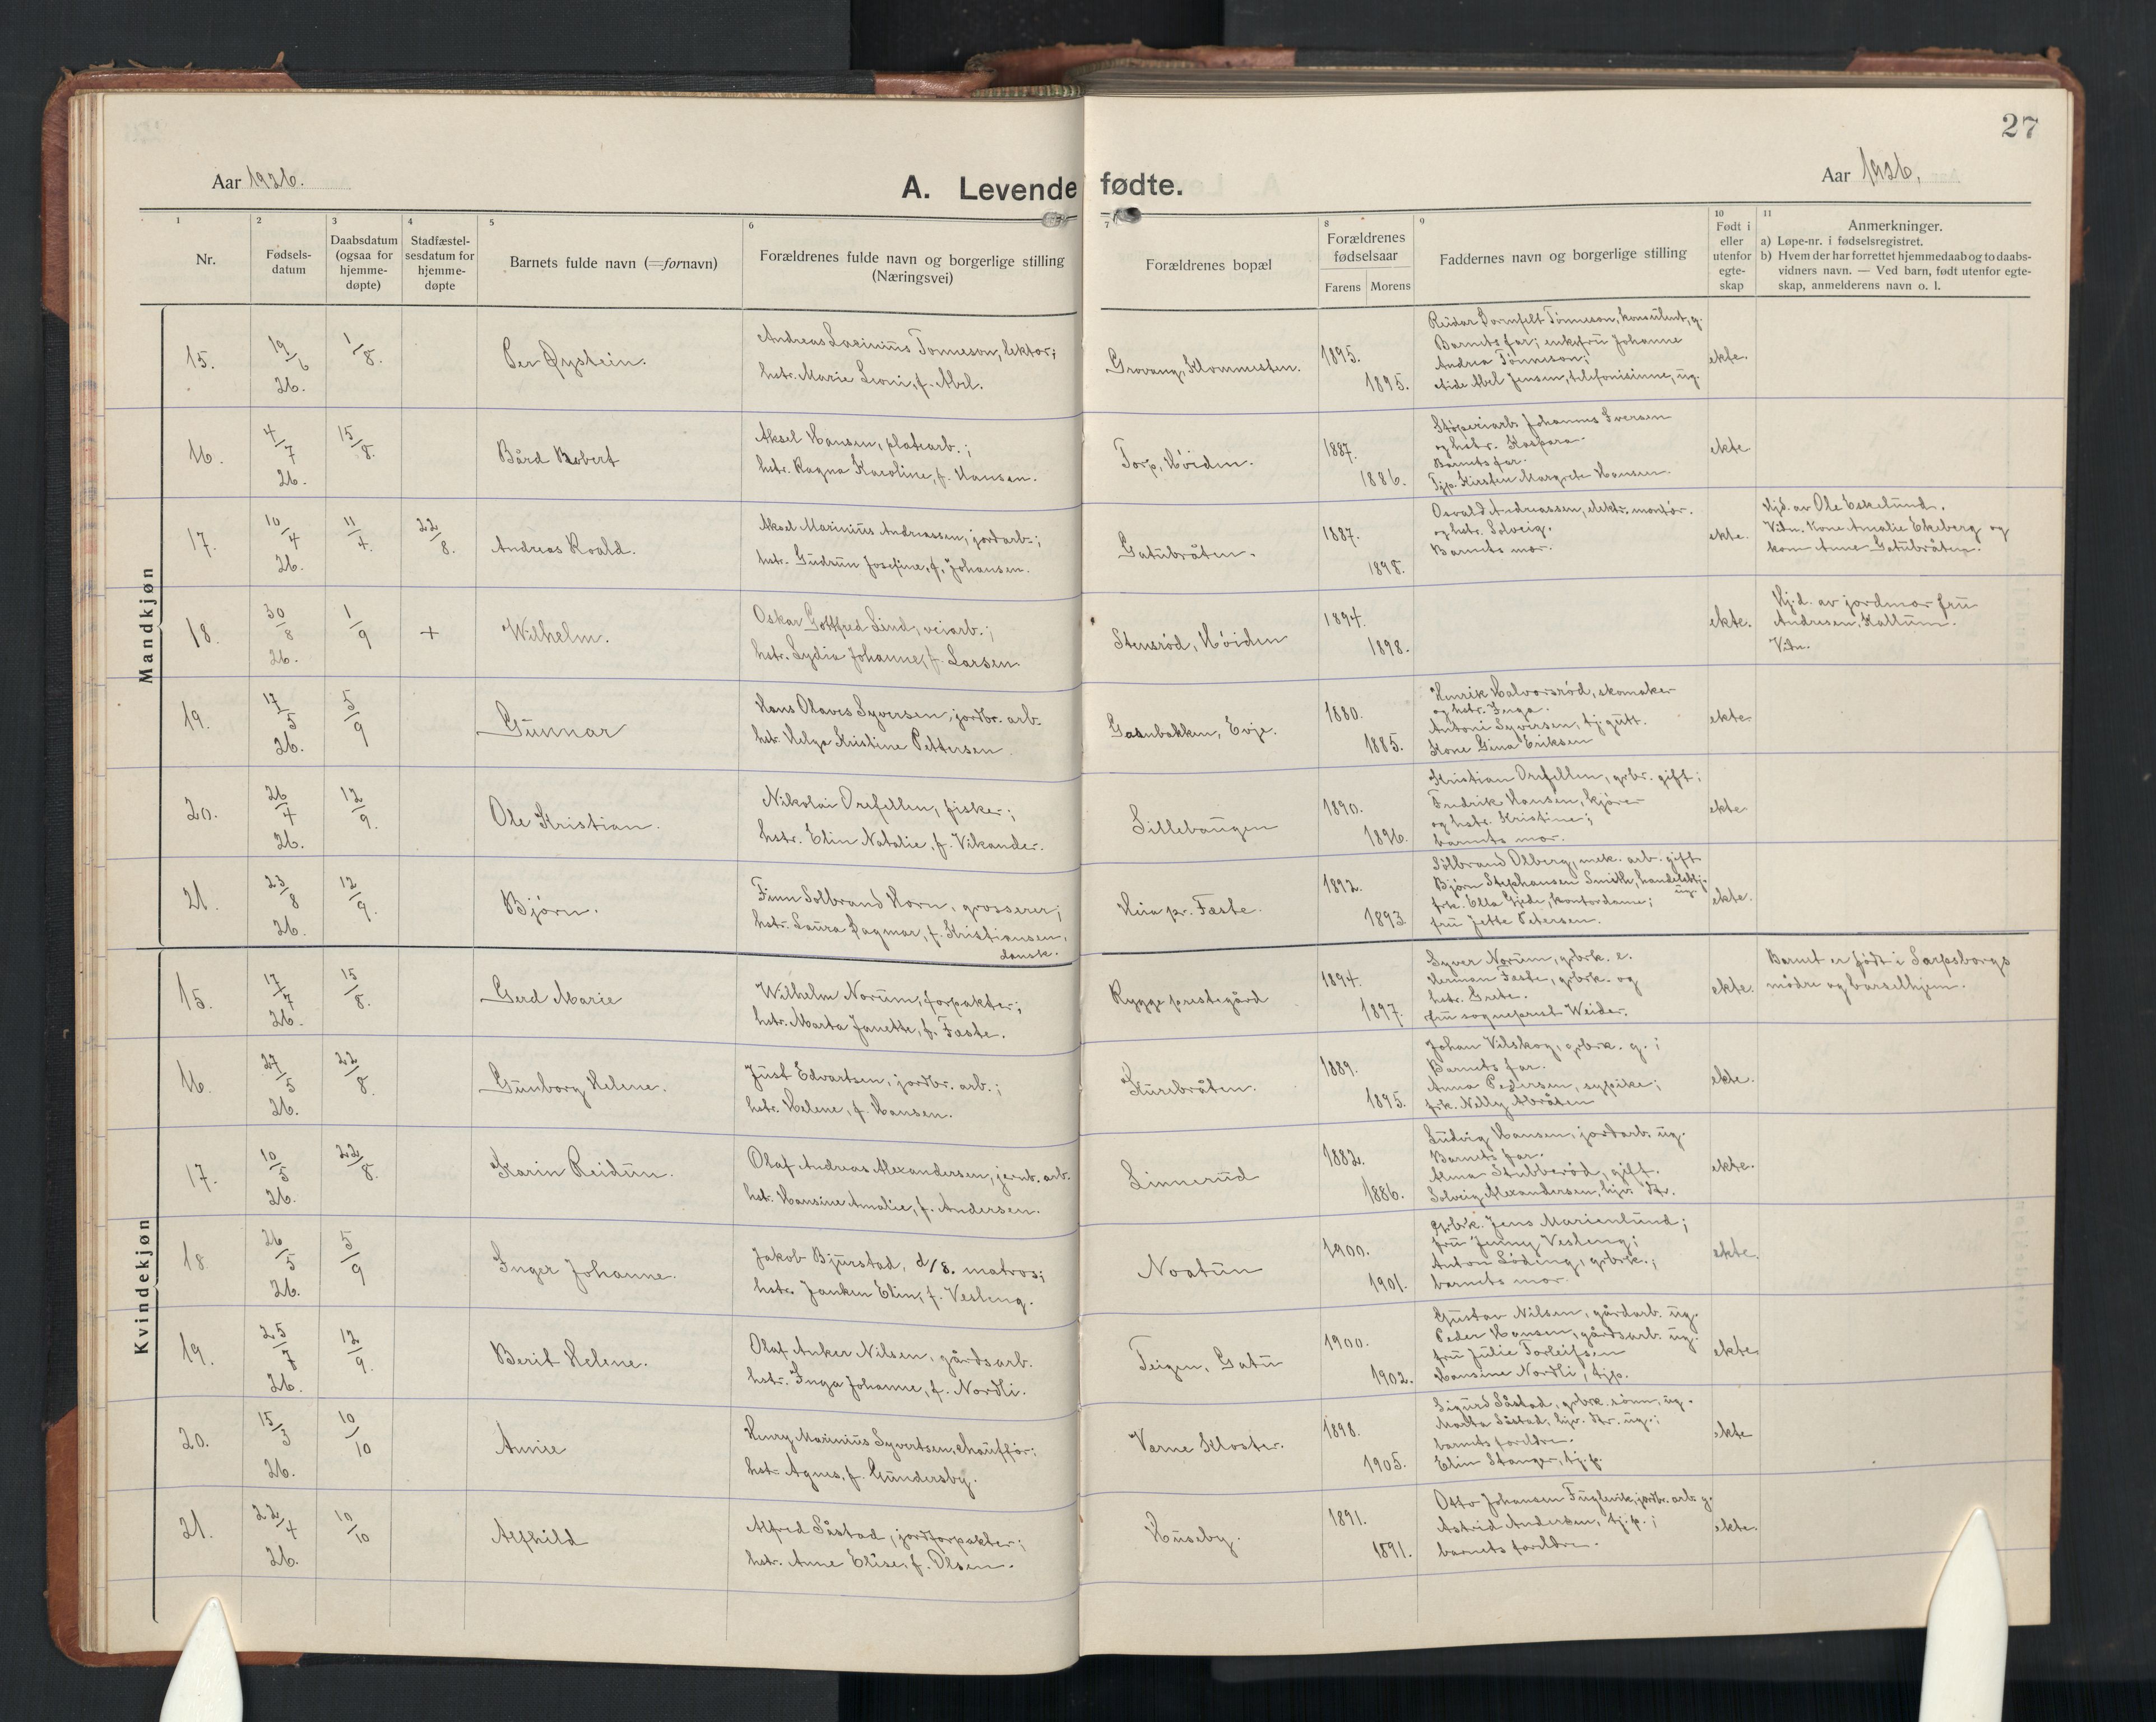 27
Aar 1926.
A. Levende fødte.
Aar 1926.
1
2
3
4
5
6
7
8
9
10
11
Nr.
Fødsels-
datum
Daabsdatum
(ogsaa for
hjemme-
døpte)
Stadfæstel-
sesdatum for
hjemme-
døpte
Barnets fulde navn (=fornavn)
Forældrenes fulde navn og borgerlige stilling
(Næringsvei)
Forældrenes bopæl
Forældrenes
fødselsaar
Farens
Morens
Faddernes navn og borgerlige stilling
Født i
eller
utenfor
egte-
skap
Anmerkninger.
a) Løpe-nr. i fødselsregistret.
b) Hvem der har forrettet hjemmedaab og to daabs-
vidners navn. — Ved barn, født utenfor egte-
skap, anmelderens navn o. l.
Mandkjøn
15.
19/6 26.
1/8.
Per Øystein.
Andreas Tønneson, lektor;
hstr. Marie Leoni, f. Abel.
Grovang, Klommesten.
1895.
1895.
Reidar Tønneson, konsulent, g.
Barnets far; enkefru Johanne
Andrea Tønneson;
Abel Jensen, telefonistinne, ug.
ekte.
16.
4/7 26.
15/8.
Bård Robert
Aksel Hansen, platearb.;
hstr. Ragna Karoline, f. Hansen.
Torp, Høiden.
1887.
1886.
Støperiarb. Johannes Iversen
og hstr. Kaspara.
Barnets far.
Tjp. Kirsten Margrete Hansen.
ekte
17.
10/4 26.
11/4.
22/8.
Andreas Roald.
Aksel Marinius Andreassen, jordarb.;
hstr. Gudrun Josefine, f. Johansen.
Gatubråten.
1887.
1898.
Osvald Andreassen, elektr. montør.
og hstr. Solveig.
Barnets mor.
ekte.
Hjd. av Ole Eskelund.
Vitn. Kone Amalie Ekeberg og
kone Anne Gatubråten.
18.
30/8 26.
1/9
+
Wilhelm.
Oskar Gottfred Lind, veiarb.;
hstr. Lydia Johanne, f. Larsen.
Stensrød, Høiden
1894.
1898.
ekte.
Hj.d. av jordmor fru
Andresen, Kallum.
Vitn.
19.
17/5 26.
5/9
Gunnar
Hans Olaves Syversen, jordbr. arb.
hstr. Helga Kristine Pettersen
Gasnbakken, Evje.
1880.
1885.
Henrik Halvorsrød, skomaker
og hstr. Inga.
Antoni Syversen, tj. gutt.
Kone Gina Eriksen
ekte.
20.
26/4 26.
12/9.
Ole Kristian.
Nikolai Orefellen, fisker;
hstr. Elin Natalie, f. Vikander.
Sillebaugen
1890.
1896.
Kristian Orefellen, grbr. gift;
Fredrik Hansen, kjører
og hstr. Kristine;
barnets mor.
ekte
21.
23/8 26.
12/9.
Bjørn.
Finn Solbrand Horn, grosserer;
hstr. Laura Dagmar, f. Kristiansen,
dansk.
Hiia pr. Fæste.
1892.
1893.
Solbrand Olberg, mek. arb. gift
Bjørn Stephansen Smith, handelsbtj.
ug.
frk. Ella Gjede, kontordame;
fru Jette Petersen.
ekte.
Kvindekjøn
15.
17/7 26.
15/8.
Gerd Marie
Wilhelm Norum, forpakter;
hstr. Marta Janette, f. Fæste.
Rygge prestegård
1894.
1897.
Syver Norum, grbrk. e.
Herman Fæste, grbrk. og
hstr. Grete.
fru sogneprest Weider.
ekte.
Barnet er født i Sarpsborgs
mødre og barselhjem.
16.
27/5 26.
22/8.
Gunborg Helene.
Just Edvartsen, jordbr. arb.;
hstr. Helene, f. Hansen.
Kurebråten.
1889.
1895.
Johan Vilskog, grbrk. g.;
Barnets far.
Anna Pedersen, sypike;
frk. Nelly Abråten
ekte.
17.
10/5 26.
22/8.
Karin Reidun.
Olaf Andreas Alexandersen, jernb. arb.
hstr. Hansine Amalie, f. Andersen.
Linnerud
1882.
1886.
Ludvig Hansen, jordarb. ug.
Barnets far.
Alma Stubberød, gift.
Solveig Alexandersen, hjv. dtr.
ekte.
18.
26/5 26.
5/9
Inger Johanne.
Jakob Bjurstad, d/s. matros;
hstr. Janken Elin, f. Vesleng.
Noatun
1900.
1901.
grbrk. Jens Marienlund;
fru Jenny Vesleng;
Anton Löding, grbrk.;
barnets mor.
ekte.
19.
25/7 26.
12/9.
Berit Helene.
Olaf Anker Nilsen, gårdsarb.
hstr. Inga Johanne, f. Nordli.
Teigen, Gatu
1900.
1902.
Gustav Nilsen, gårdarb. ug.
Peder Hansen, gårdsarb. ug.
fru Julie Torleifsen
Hansine Nordli, tjp.
ekte.
20.
15/3 26.
10/10
Annie
Henry Marinius Syvertsen, chauffør;
hstr. Agnes, f. Gundersby.
Værne Kloster.
1898.
1905.
Sigurd Såstad, grbrk. sønn, ug.
Marta Såstad, hjv. dtr. ug.;
barnets foreldre.
Elin Stanger, tj.p.
ekte
21.
22/4 26.
10/10
Alfhild
Alfred Såstad, jordforpakter;
hstr. Anne Elise, f. Olsen.
Huseby.
1891.
1891.
Otto Johansen Fuglevik, jordbr. arb. g.
Astrid Andersen, tj.p.;
barnets foreldre.
ekte.